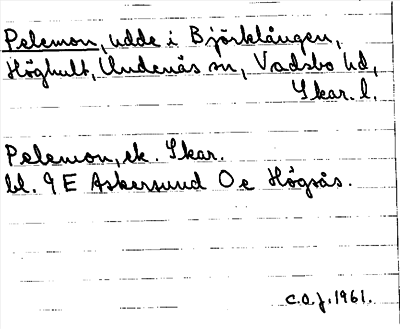 Pelemon, udde i Björklången,
Höghult, Undenäs sn, Vadsbo hd,
Skar. l.
Pelemon, ek. Skar.
bl. 9 E Askersund O e Högsås.
C.O.J. 1961.